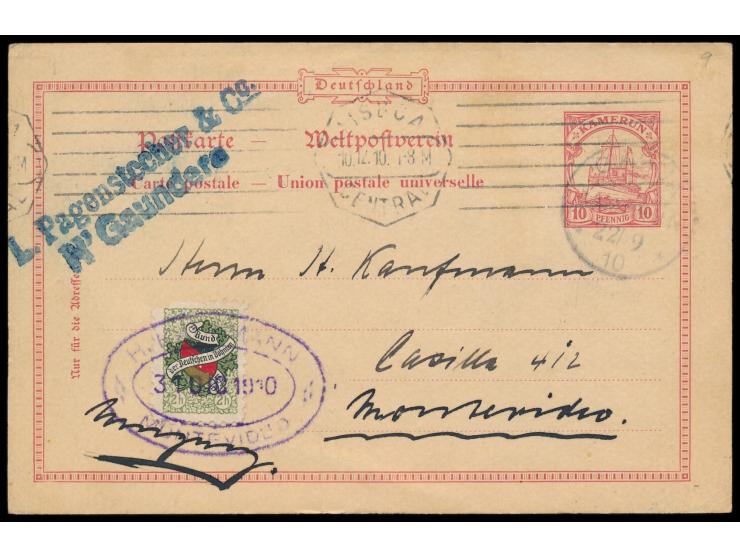 9
L. Pagenstecher & Co.
N'Gaundere
Deutschland
Postkarte — Weltpostverein
Carte postale — Union postale universelle
LISBOA
10.12.10. 1-8 M
CENTRAL
KAMERUN
10 PFENNIG 10
22/9
10
Nur für die Adresse
Herrn H. Kaufmann
Casilla 412
Montevideo.
Bund
der Deutschen in Böhmen
2h 2h
MANN
31 1910
MONTEVIDEO